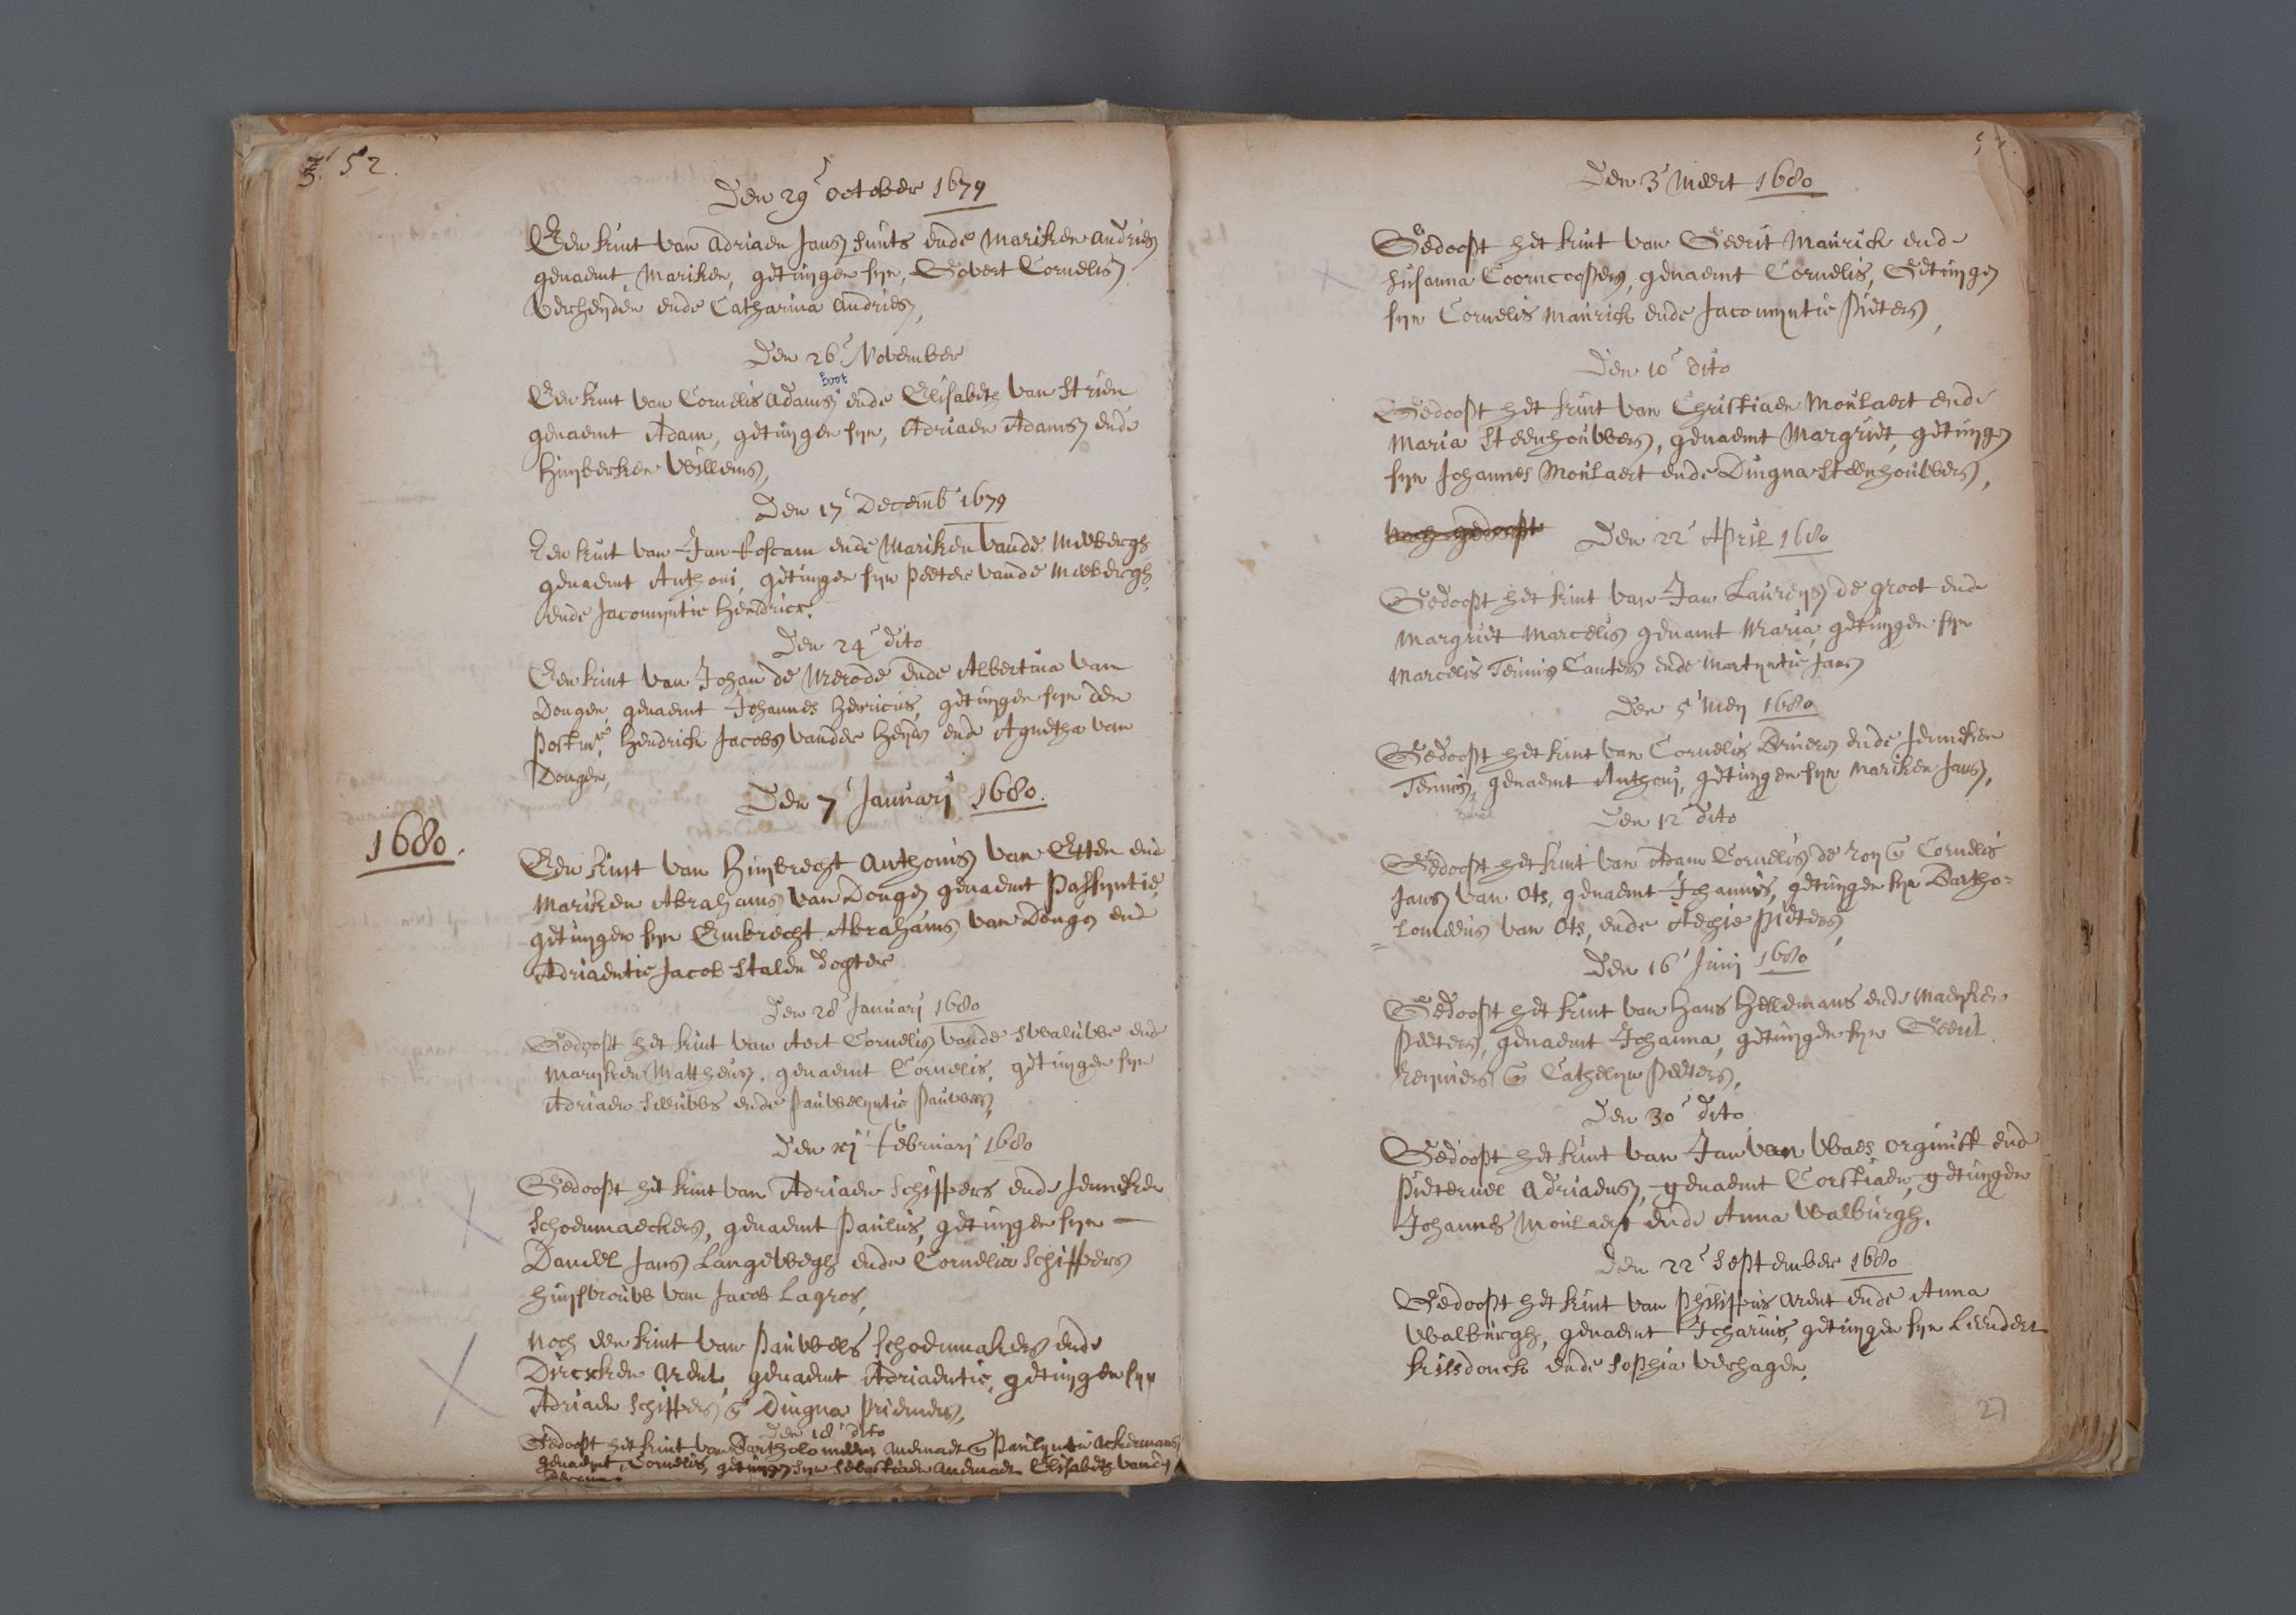 52.
Den 29 october 1679
Een kint van Adriaen Jans Smits ende Mariken Andries
genaemt Mariken, getuygen syn, Govert Cornelis
Verheyden ende Catharina Andries,
Den 26 November
boot
Een kint van Cornelis Adams ende Elisabeth van Strien
genaemt Adam, getuygen syn, Adriaen Adams ende
Huyberken Willems,
Den 17 Decemb 1679
Een kint van Jan Roscam ende Mariken vande Meebergh
genaemt Anthoni, getuygen syn Peeter vande Meebergh
ende Jacomyntie Hendricx.
Den 24 dito
Een kint van Johan de Merode ende Albertina van
Dongen, genaemt Johannes Henricus, getuygen syn den
Postmr. Hendrick Jacobs vander Heyd ende Agnetha van
Dongen,
Den 7 Januarj 1680.
1680.
Een kint van Huybrecht Anthonis van Etten end
Mariken Abrahams van Dongen genaemt Passyntie,
getuygen syn Embrecht Abrahams van Dongen end
Adriaentie Jacob Stalen dogter
Den 28 Januarj 1680
Gedoopt het kint van Aert Cornelis vande Swaluwe end
Maryken Mattheus, genaemt Cornelis, getuygen syn
Adriaen Leeuws ende Pauwelyntie Pauwels,
Den xj Februarj 1680
Gedoopt het kint van Adriaen Schippers ende Jenneken
Schoenmaeckers, genaemt Paulus, getuygen syn —
Daniel Jans Langewegh ende Cornelia Schippers
huysvrouw van Jacob Lagros,
Noch een kint van Pauwels Schoenmakers ende
Dircxken Arent, genaemt Adriaentie, getuygen syn
Adriaen Schippers & Dingna
Den 18 dito
Gedoopt het kint van Bartholomeeus & Paulyntie Ackermans
genaemt Cornelis, getuygen syn Sebastiaen Elisabeth vandn
Den 3 Meert 1680
Gedoopt het kint van Geerit Maurick ende
Susanna Coorncoopers, genaemt Cornelis, Getuygen
syn Cornelis Maurick ende Jacomyntie Pieters,
Den 10 dito
Gedoopt het kint van Christiaen Moulaert ende
Maria Steenhouwers, genaemt Margriet, getuygen
syn Johannes Moulaert ende Dingna Steenhouwers,
Noch gedoopt
Den 22 April 1680
Gedoopt het kint van Jan Laureys de Groot ende
Margriet Marcelis genaemt Maria, getuygen syn
Marcelis Teunis Canters ende Martyntie Jans
Den 5 Mey 1680
Gedoopt het kint van Cornelis Bruers ende Jenneken
Teunis, genaemt Anthonj, getuygen syn Mariken Jans,
Den 12 dito
Gedoopt het kint van Adam Cornelis de roy & Cornelis
Jans van Ots, genaemt Johannis, getuygen syn Bartho=
=lomeeus van Ots, ende Aechie Pieters,
Den 16 Junij 1680
Gedoopt het kint van Hans Hellemans ende Mayken
Peeters, genaemt Johanna, getuygen syn Geerit
Reyniers & Cathelyn Peeters,
Den 30 dito
Gedoopt het kint van Jan van Waes orginist end
Pieternel Adriaens, genaemt Corstiaen, getuygen
Johannes Moulaert ende Anna Walburgh.
Den 22 September 1680
Gedoopt het kint van Philippus Arent ende Anna
Walburgh, genaemt Icharius, getuygen syn Leendert
Kilsdonck ende Sophia Verhagen.
27